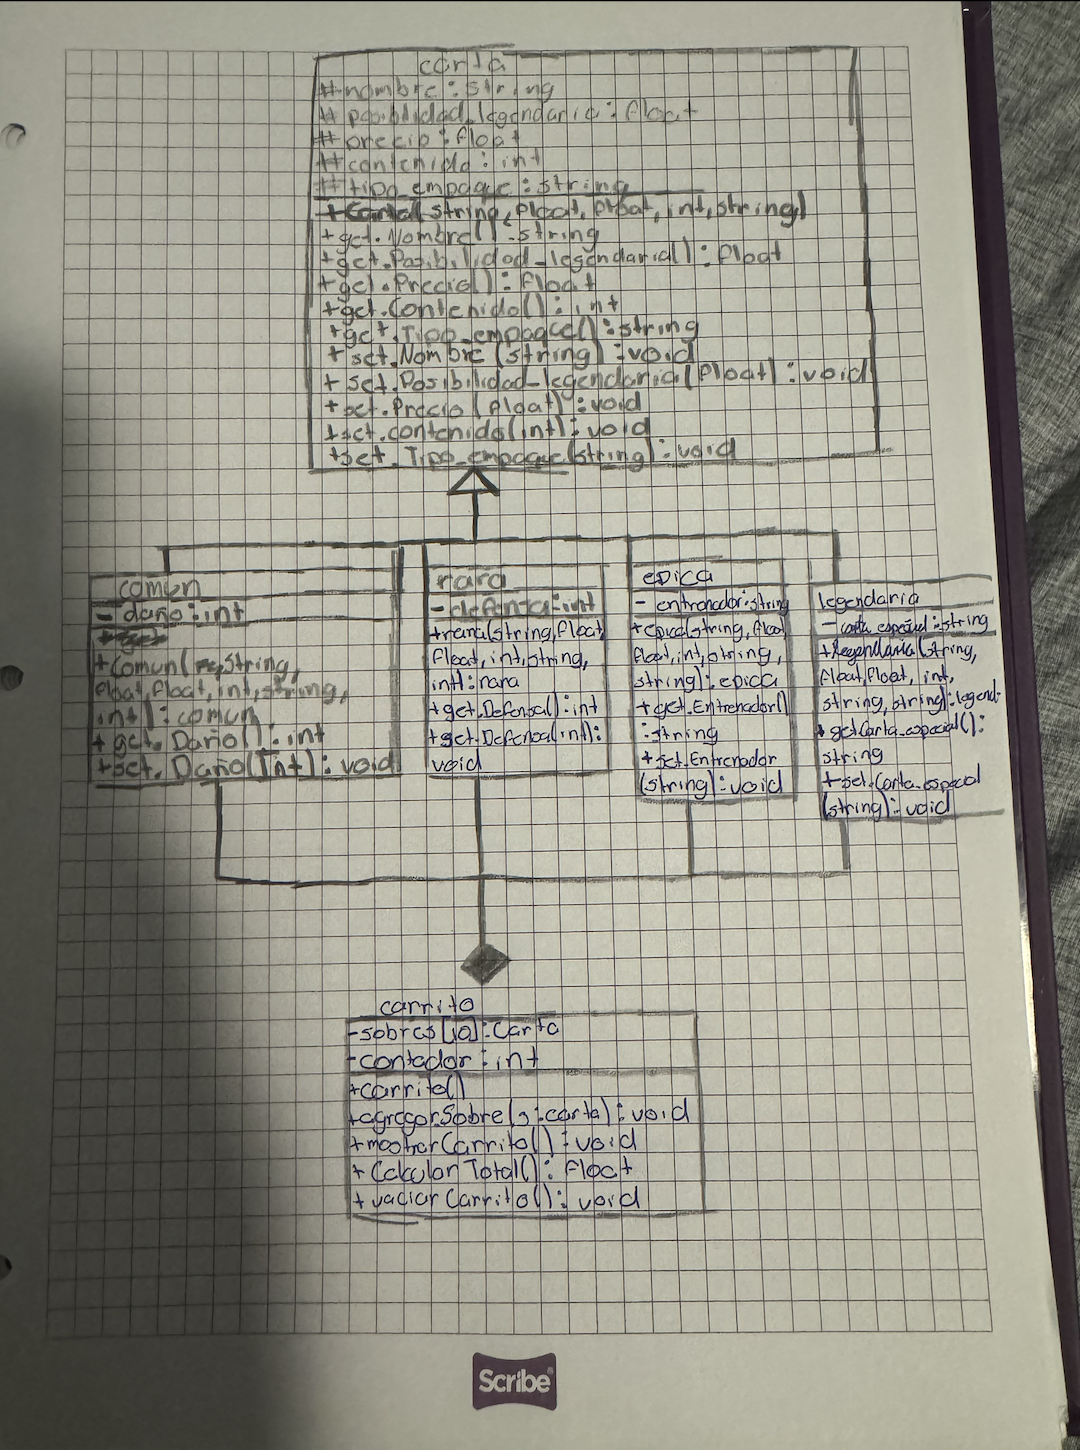 carta
# nombre : String
# posiblidad_legendaria : float
# precio : float
# contenido : int
# tipo_empaque : string
+ Carta(string, float, float, int, string)
+ get.Nombre() : string
+ get.Posibilidad_legendaria() : float
+ get.Precio() : float
+ get.Contenido() : int
+ get.Tipo_empaque() : string
+ set.Nombre (string) : void
+ set.Posibilidad_legendaria(float) : void
+ set.Precio (float) : void
+ set.contenido(int) : void
+ set.Tipo_empaque(string) : void
comun
- daño : int
+ Comun( string,
float, float, int, string,
int) : comun
+ get. Daño() : int
+ set. Daño(Int) : void
rara
- defensa : int
+rara(string, float
float, int, string,
int) : rara
+get.Defensa() : int
+get.Defensa(int) :
void
epica
- entrenador : string
+epica(string, float
float, int, string,
string) : epica
+get.Entrenador()
: string
+ set.Entrenador
(string) : void
legendaria
- carta_especial : string
+legendaria(string,
float, float, int,
string, string) : legend-
+ getCarta_especial() :
string
+ set.Carta_especial
(string) : void
carrito
-sobres [10] : Carta
-contador : int
+carrito()
+agregarSobre(s : carta) : void
+mostrarCarrito() : void
+ CalcularTotal() : float
+ vaciarCarrito() : void
Scribe